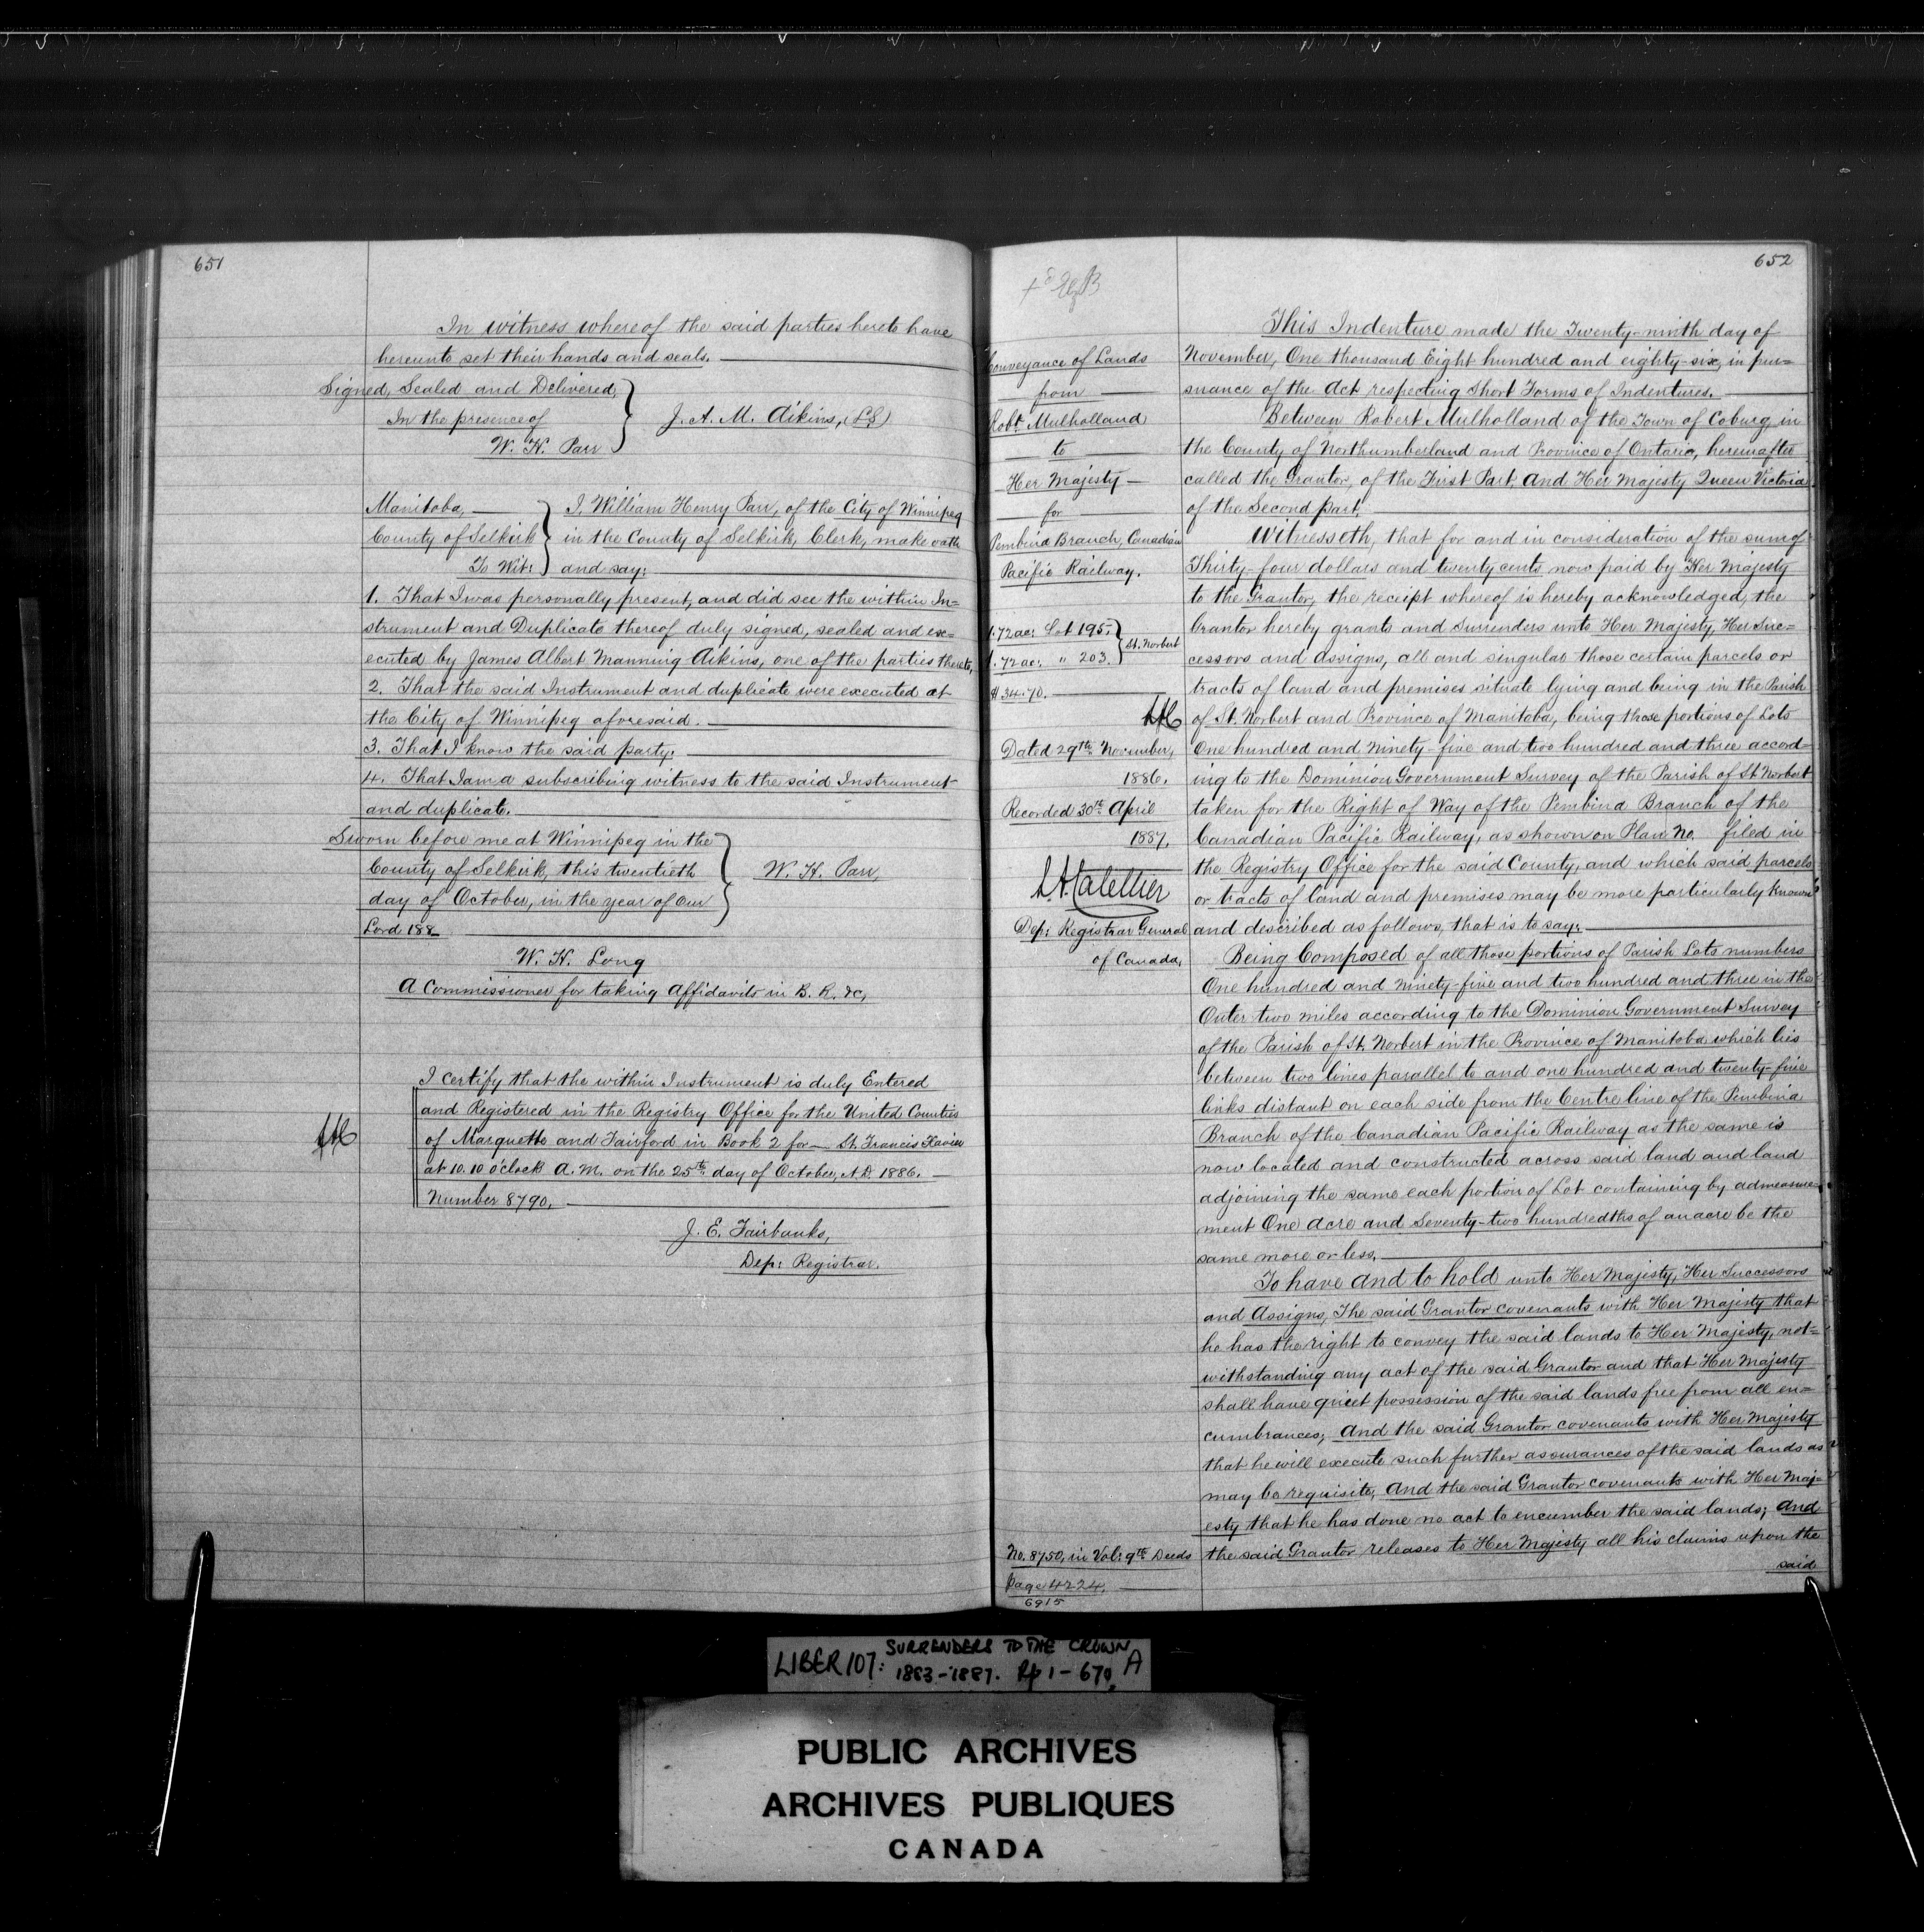 651
In witness whereof the said parties hereto have
hereunto set their hands and seals.
Signed, Sealed and Delivered,
In the presence of
W. H. Parr
J. A. M. Aikins, (LS)
Manitoba,
County of Selkirk
To Wit:
I, William Henry Parr, of the City of Winnipeg
in the County of Selkirk, Clerk, make oath
and say:
1. That I was personally present, and did see the within In=
strument and Duplicate thereof duly signed, sealed and exe=
ecuted by James Albert Manning Aikins, one of the parties thereto,
2. That the said Instrument and duplicate were executed at
the City of Winnipeg aforesaid.
3. That I know the said party.
4. That I am a subscribing witness to the said Instrument
and duplicate.
Sworn before me at Winnipeg in the
County of Selkirk, this twentieth
day of October, in the year of our
Lord 188
W. H. Parr,
W. H. Long
A Commissioner for taking Affidavits in B. R. &c,
I certify that the within Instrument is duly Entered
and Registered in the Registry Office for the United Counties
of Marquette and Fairford in Book 2 for St. Francis Xavier
at 10.10 o'clock A.M. on the 25th day of October, A.D. 1886.
Number 8790.
J. E. Fairbanks,
Dep: Registrar.
652
Conveyance of Lands
from
Robt. Mulholland
to
Her Majesty
for
Pembina Branch, Canadian
Pacific Railway.
1.72 ac: Lot 195.
1.72 ac: " 203.
St. Norbert
$34.70.
Dated 29th November,
1886.
Recorded 30th April
1887.
L. A. Catellier
Dep: Registrar General
of Canada,
No. 8750, in Vol: 9th Deeds
Page 4224.
6915
This Indenture made the Twenty-ninth day of
November, One thousand Eight hundred and eighty-six, in pur=
suance of the Act respecting Short Forms of Indentures.
Between Robert Mulholland of the Town of Coburg in
the County of Northumberland and Province of Ontario, hereinafter
called the Grantor, of the First Part, And Her Majesty Queen Victoria
of the Second part.
Witnesseth, that for and in consideration of the sum of
Thirty-four dollars and twenty cents now paid by Her Majesty
to the Grantor, the receipt whereof is hereby acknowledged, the
Grantor hereby grants and Surrenders unto Her Majesty, Her Suc=
cessors and Assigns, all and singular those certain parcels or
tracts of land and premises situate lying and being in the Parish
of St. Norbert and Province of Manitoba, being those portions of Lots
One hundred and Ninety-five and two hundred and three accord=
ing to the Dominion Government Survey of the Parish of St Norbert
taken for the Right of Way of the Pembina Branch of the
Canadian Pacific Railway, as shown on Plan No. filed in
the Registry Office for the said County, and which said parcels
or tracts of land and premises may be more particularly known
and described as follows, that is to say:
Being Composed of all those portions of Parish Lots numbers
One hundred and Ninety-five and two hundred and three in the
Outer two miles according to the Dominion Government Survey
of the Parish of St. Norbert in the Province of Manitoba which lies
between two lines parallel to and one hundred and twenty-five
links distant on each side from the Centre line of the Pembina
Branch of the Canadian Pacific Railway as the same is
now located and constructed across said land and land
adjoining the same each portion of Lot containing by admeasure=
ment One acre and Seventy-two hundredths of an acre be the
same more or less.
To have and to hold unto Her Majesty, Her Successors
and Assigns, The said Grantor covenants with Her Majesty that
he has the right to convey the said lands to Her Majesty, not=
withstanding any act of the said Grantor and that Her Majesty
shall have quiet possession of the said lands free from all en=
cumbrances; And the said Grantor covenants with Her Majesty
that he will execute such further assurances of the said lands as
may be requisite, And the said Grantor covenants with Her Maj=
esty that he has done no act to encumber the said lands; And
the said Grantor releases to Her Majesty all his claims upon the
said
LIBER 107: SURRENDERS TO THE CROWN
1883-1887. Pp 1-670. A
PUBLIC ARCHIVES
ARCHIVES PUBLIQUES
CANADA